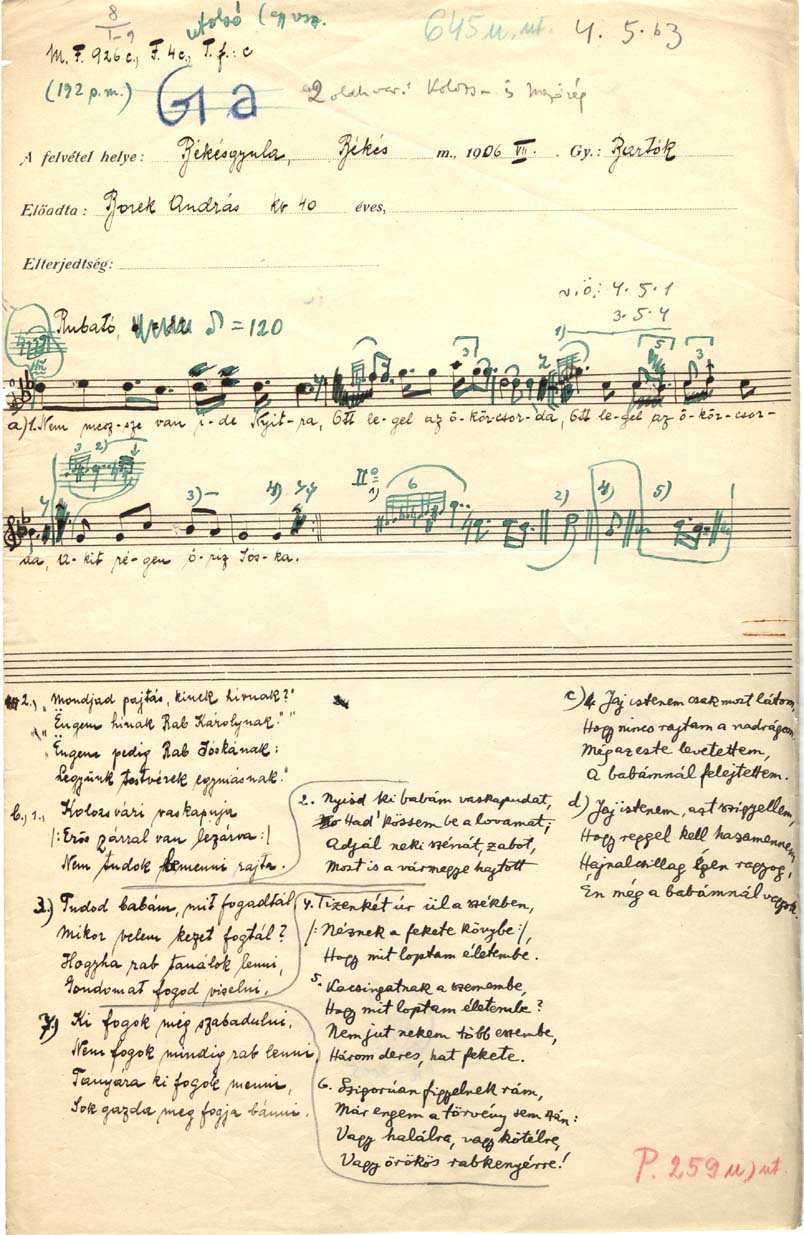 8
I-9
utolsó
645 u. ut.
4. 5. b3
M. F. 926c., F. 4c., T. f.: c
(192 p. m.)
G1a
Kolozs- és Mezőség
A felvétel helye: Békésgyula, Békés m., 1906 VII. Gy.: Bartók
Előadta: Borek András kb 40 éves,
Elterjedtség:
v. ö.: 4. 5. 1
3. 5. 4
Rubató, ♪ = 120
1)
3
5
3
a) 1. Nem mesz-sze van i-de Nyit-ra, Ott le-gel az ö-kör-csor-da, Ott le-gel az ö-kör-csor-
3 2)
3)
4)
II
1)
6
2)
4)
5)
da, A-kit ré-gen ő-riz Jós-ka.
2., "Mondjad pajtás, kinek hívnak?"
"Engem hínak Rab Karolynak."
"Engem pedig Rab Jóskának:
Legyünk testvérek egymásnak."
b., 1., Kolozsvári vaskapuja
|: Erős zárral van lezárva :|
Nem tudok bemenni rajta.
3.) Tudod babám, mit fogadtál
Mikor velem kezet fogtál?
Hogyha rab tanálok lenni,
Gondomat fogod viselni.
7.) Ki fogok még szabadulni,
Nem fogok mindig rab lenni,
Tanyára ki fogok menni,
Sok gazda meg fogja bánni.
2. Nyisd ki babám vaskapudat,
Had' kössem be a lovamat;
Adjál neki szénát, zabot,
Most is a vármegye hajtott
4. Tizenkét úr ül a székben,
|: Néznek a fekete könyvbe :|,
Hogy mit loptam életembe.
5. Kacsingatnak a szemembe,
Hogy mit loptam életembe?
Nem jut nekem több eszembe,
Három deres, hat fekete.
6. Szigorúan figyelnek rám,
Már engem a törvény sem szán:
Vagy halálra, vagy kötélre,
Vagy örökös rabkenyérre!
c) 1. Jaj istenem csak most látom,
Hogy nincs rajtam a nadrágom.
Még az este levetettem,
A babámnál felejtettem.
d) Jaj istenem, azt szégyellem,
Hogy reggel kell hazamennem,
Hajnalcsillag égen ragyog,
Én még a babámnál vagyok.
P. 259 u) ut.